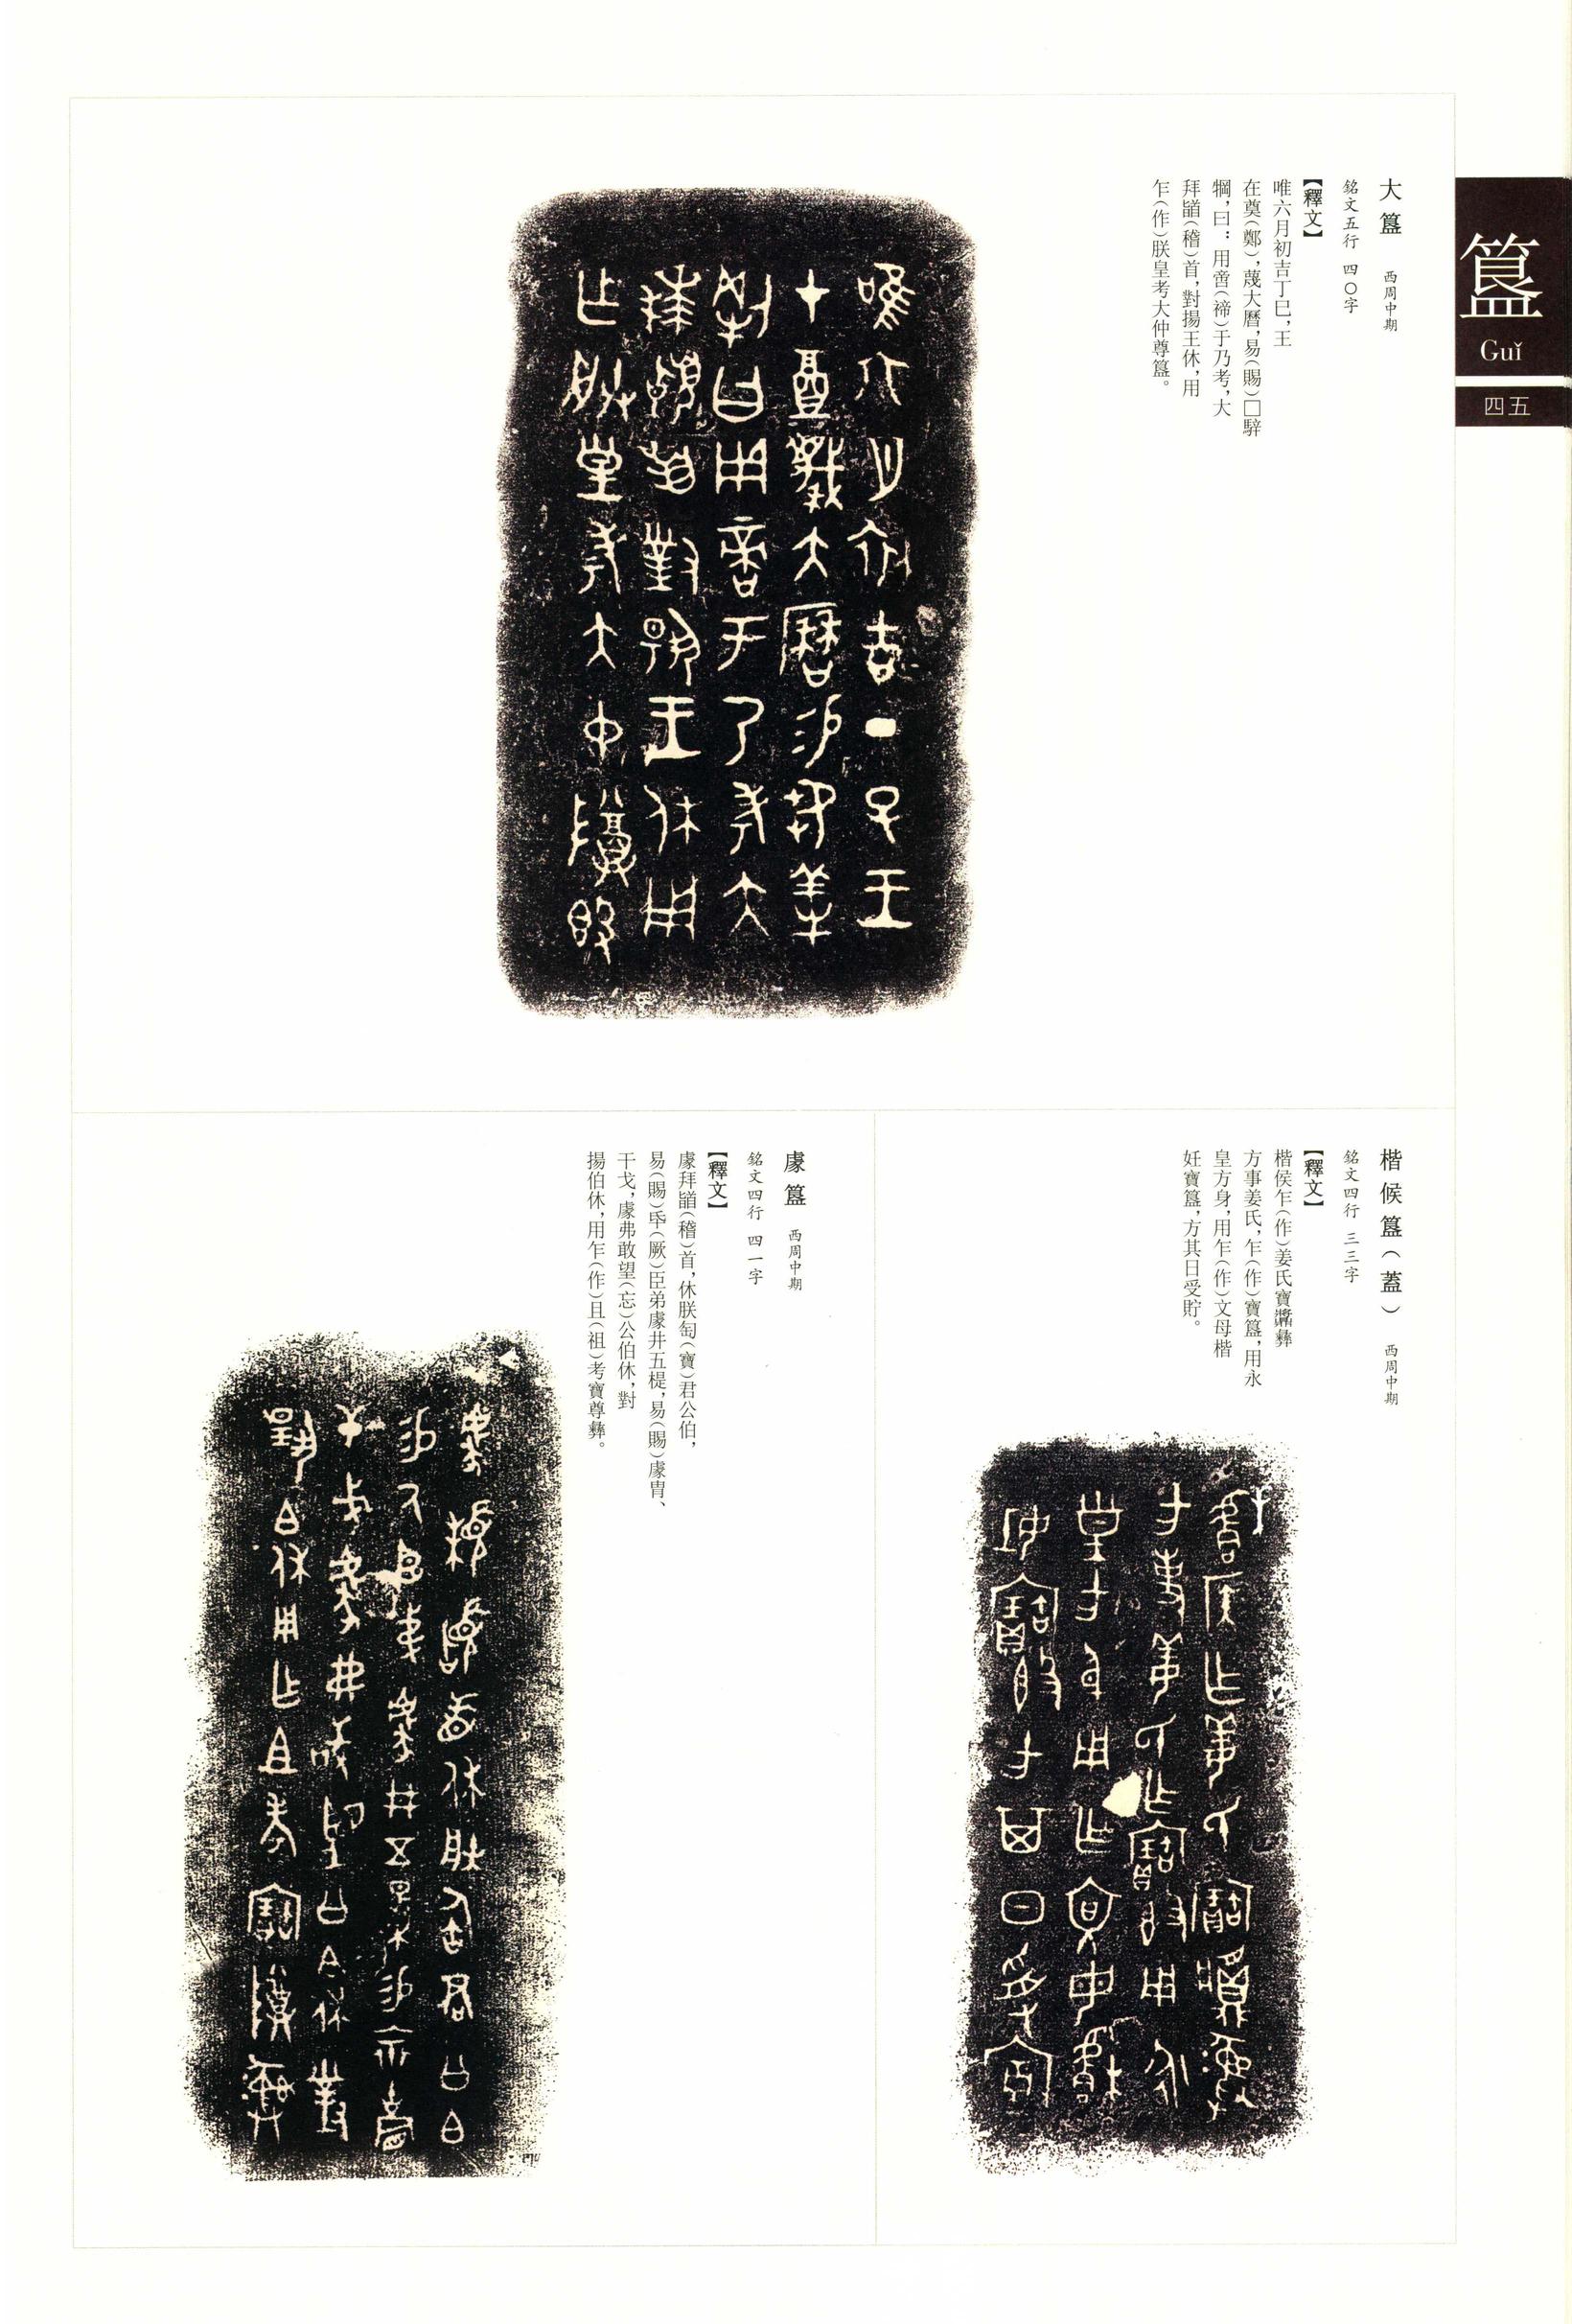 簋
Guǐ
四五
大簋 西周中期
銘文五行 四〇字
【釋文】
唯六月初吉丁巳，王
在奠（鄭），蔑大曆，易（賜）□騂
犅，曰：用啻（禘）于乃考，大
拜𩒨（稽）首，對揚王休，用
乍（作）朕皇考大仲尊簋。
楷候簋（蓋） 西周中期
銘文四行 三三字
【釋文】
楷侯乍（作）姜氏寶䵼彝
方事姜氏，乍（作）寶簋，用永
皇方身，用乍（作）文母楷
妊寶簋，方其日受貯。
豦簋 西周中期
銘文四行 四一字
【釋文】
豦拜𩒨（稽）首，休朕匋（寶）君公伯，
易（賜）氒（厥）臣弟豦井五楒，易（賜）豦冑、
干戈，豦弗敢望（忘）公伯休，對
揚伯休，用乍（作）且（祖）考寶尊彝。